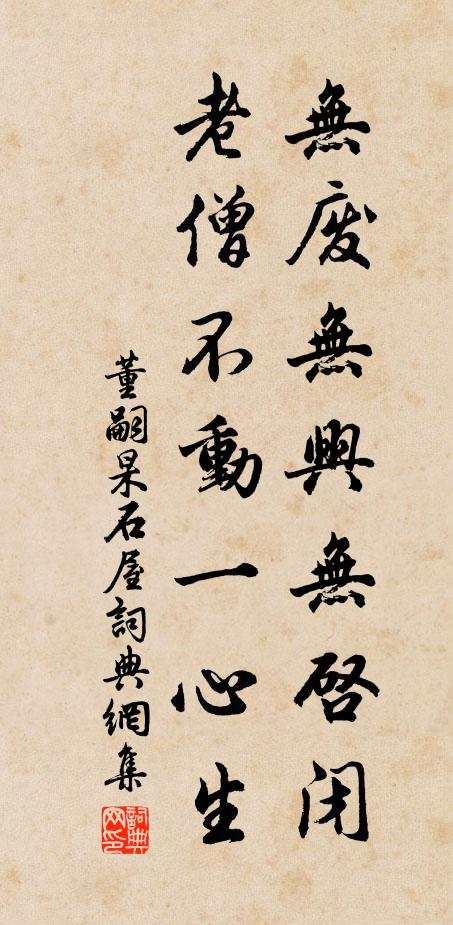 無廢無興無啓閉
老僧不動一心生
董嗣杲石屋詞典網集
詞典網印